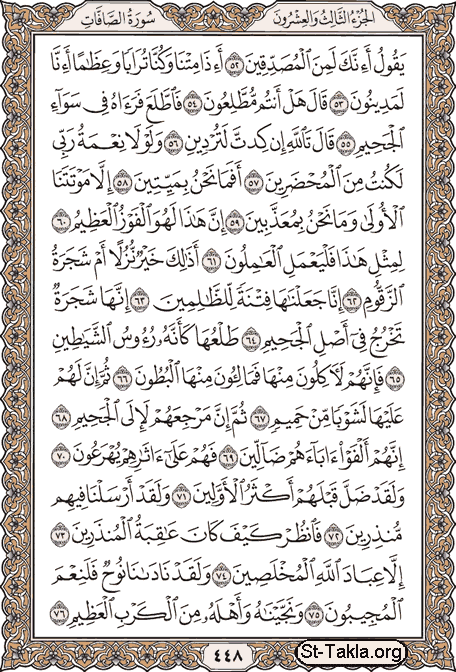 الجزء الثالث والعشرون
سورة الصافات
يَقُولُ أَءِنَّكَ لَمِنَ الْمُصَدِّقِينَ ٥٢ أَءِذَا مِتْنَا وَكُنَّا تُرَابًا وَعِظَٰمًا أَءِنَّا
لَمَدِينُونَ ٥٣ قَالَ هَلْ أَنتُم مُّطَّلِعُونَ ٥٤ فَاطَّلَعَ فَرَءَاهُ فِي سَوَاءِ
الْجَحِيمِ ٥٥ قَالَ تَاللَّهِ إِن كِدتَّ لَتُرْدِينِ ٥٦ وَلَوْلَا نِعْمَةُ رَبِّي
لَكُنتُ مِنَ الْمُحْضَرِينَ ٥٧ أَفَمَا نَحْنُ بِمَيِّتِينَ ٥٨ إِلَّا مَوْتَتَنَا
الْأُولَىٰ وَمَا نَحْنُ بِمُعَذَّبِينَ ٥٩ إِنَّ هَٰذَا لَهُوَ الْفَوْزُ الْعَظِيمُ ٦٠
لِمِثْلِ هَٰذَا فَلْيَعْمَلِ الْعَٰمِلُونَ ٦١ أَذَٰلِكَ خَيْرٌ نُّزُلًا أَمْ شَجَرَةُ
الزَّقُّومِ ٦٢ إِنَّا جَعَلْنَٰهَا فِتْنَةً لِّلظَّٰلِمِينَ ٦٣ إِنَّهَا شَجَرَةٌ
تَخْرُجُ فِي أَصْلِ الْجَحِيمِ ٦٤ طَلْعُهَا كَأَنَّهُ رُءُوسُ الشَّيَٰطِينِ
٦٥ فَإِنَّهُمْ لَءَاكِلُونَ مِنْهَا فَمَالِـُٔونَ مِنْهَا الْبُطُونَ ٦٦ ثُمَّ إِنَّ لَهُمْ
عَلَيْهَا لَشَوْبًا مِّنْ حَمِيمٍ ٦٧ ثُمَّ إِنَّ مَرْجِعَهُمْ لَإِلَى الْجَحِيمِ ٦٨
إِنَّهُمْ أَلْفَوْا ءَابَاءَهُمْ ضَالِّينَ ٦٩ فَهُمْ عَلَىٰ ءَاثَٰرِهِمْ يُهْرَعُونَ ٧٠
وَلَقَدْ ضَلَّ قَبْلَهُمْ أَكْثَرُ الْأَوَّلِينَ ٧١ وَلَقَدْ أَرْسَلْنَا فِيهِم
مُّنذِرِينَ ٧٢ فَانظُرْ كَيْفَ كَانَ عَٰقِبَةُ الْمُنذَرِينَ ٧٣
إِلَّا عِبَادَ اللَّهِ الْمُخْلَصِينَ ٧٤ وَلَقَدْ نَادَىٰنَا نُوحٌ فَلَنِعْمَ
الْمُجِيبُونَ ٧٥ وَنَجَّيْنَٰهُ وَأَهْلَهُ مِنَ الْكَرْبِ الْعَظِيمِ ٧٦
٤٤٨
St-Takla.org